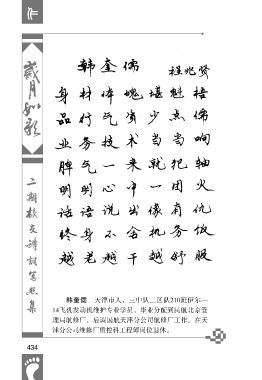 岁月如歌
二期校友诗词写照集
韩奎儒
身材体魄堪魁梧
品行气质少点儒
业务技术当当响
脾气一来就犯轴
明明心中一团火
话语说出像有仇
终身不舍机务做
越老越干越舒服
韩奎儒 天津市人，三中队二区队210班伊尔—
14飞机发动机维护专业学员，毕业分配到民航北京管
理局航修厂，后调国航天津分公司航修厂工作。在天
津分公司维修厂质控科工程师岗位退休。
434